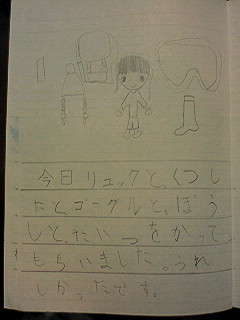 今日リュックと、くつし
たと、ゴーグルと、ぼう
しと、たいつをかって
もらいました。うれ
しかったです。